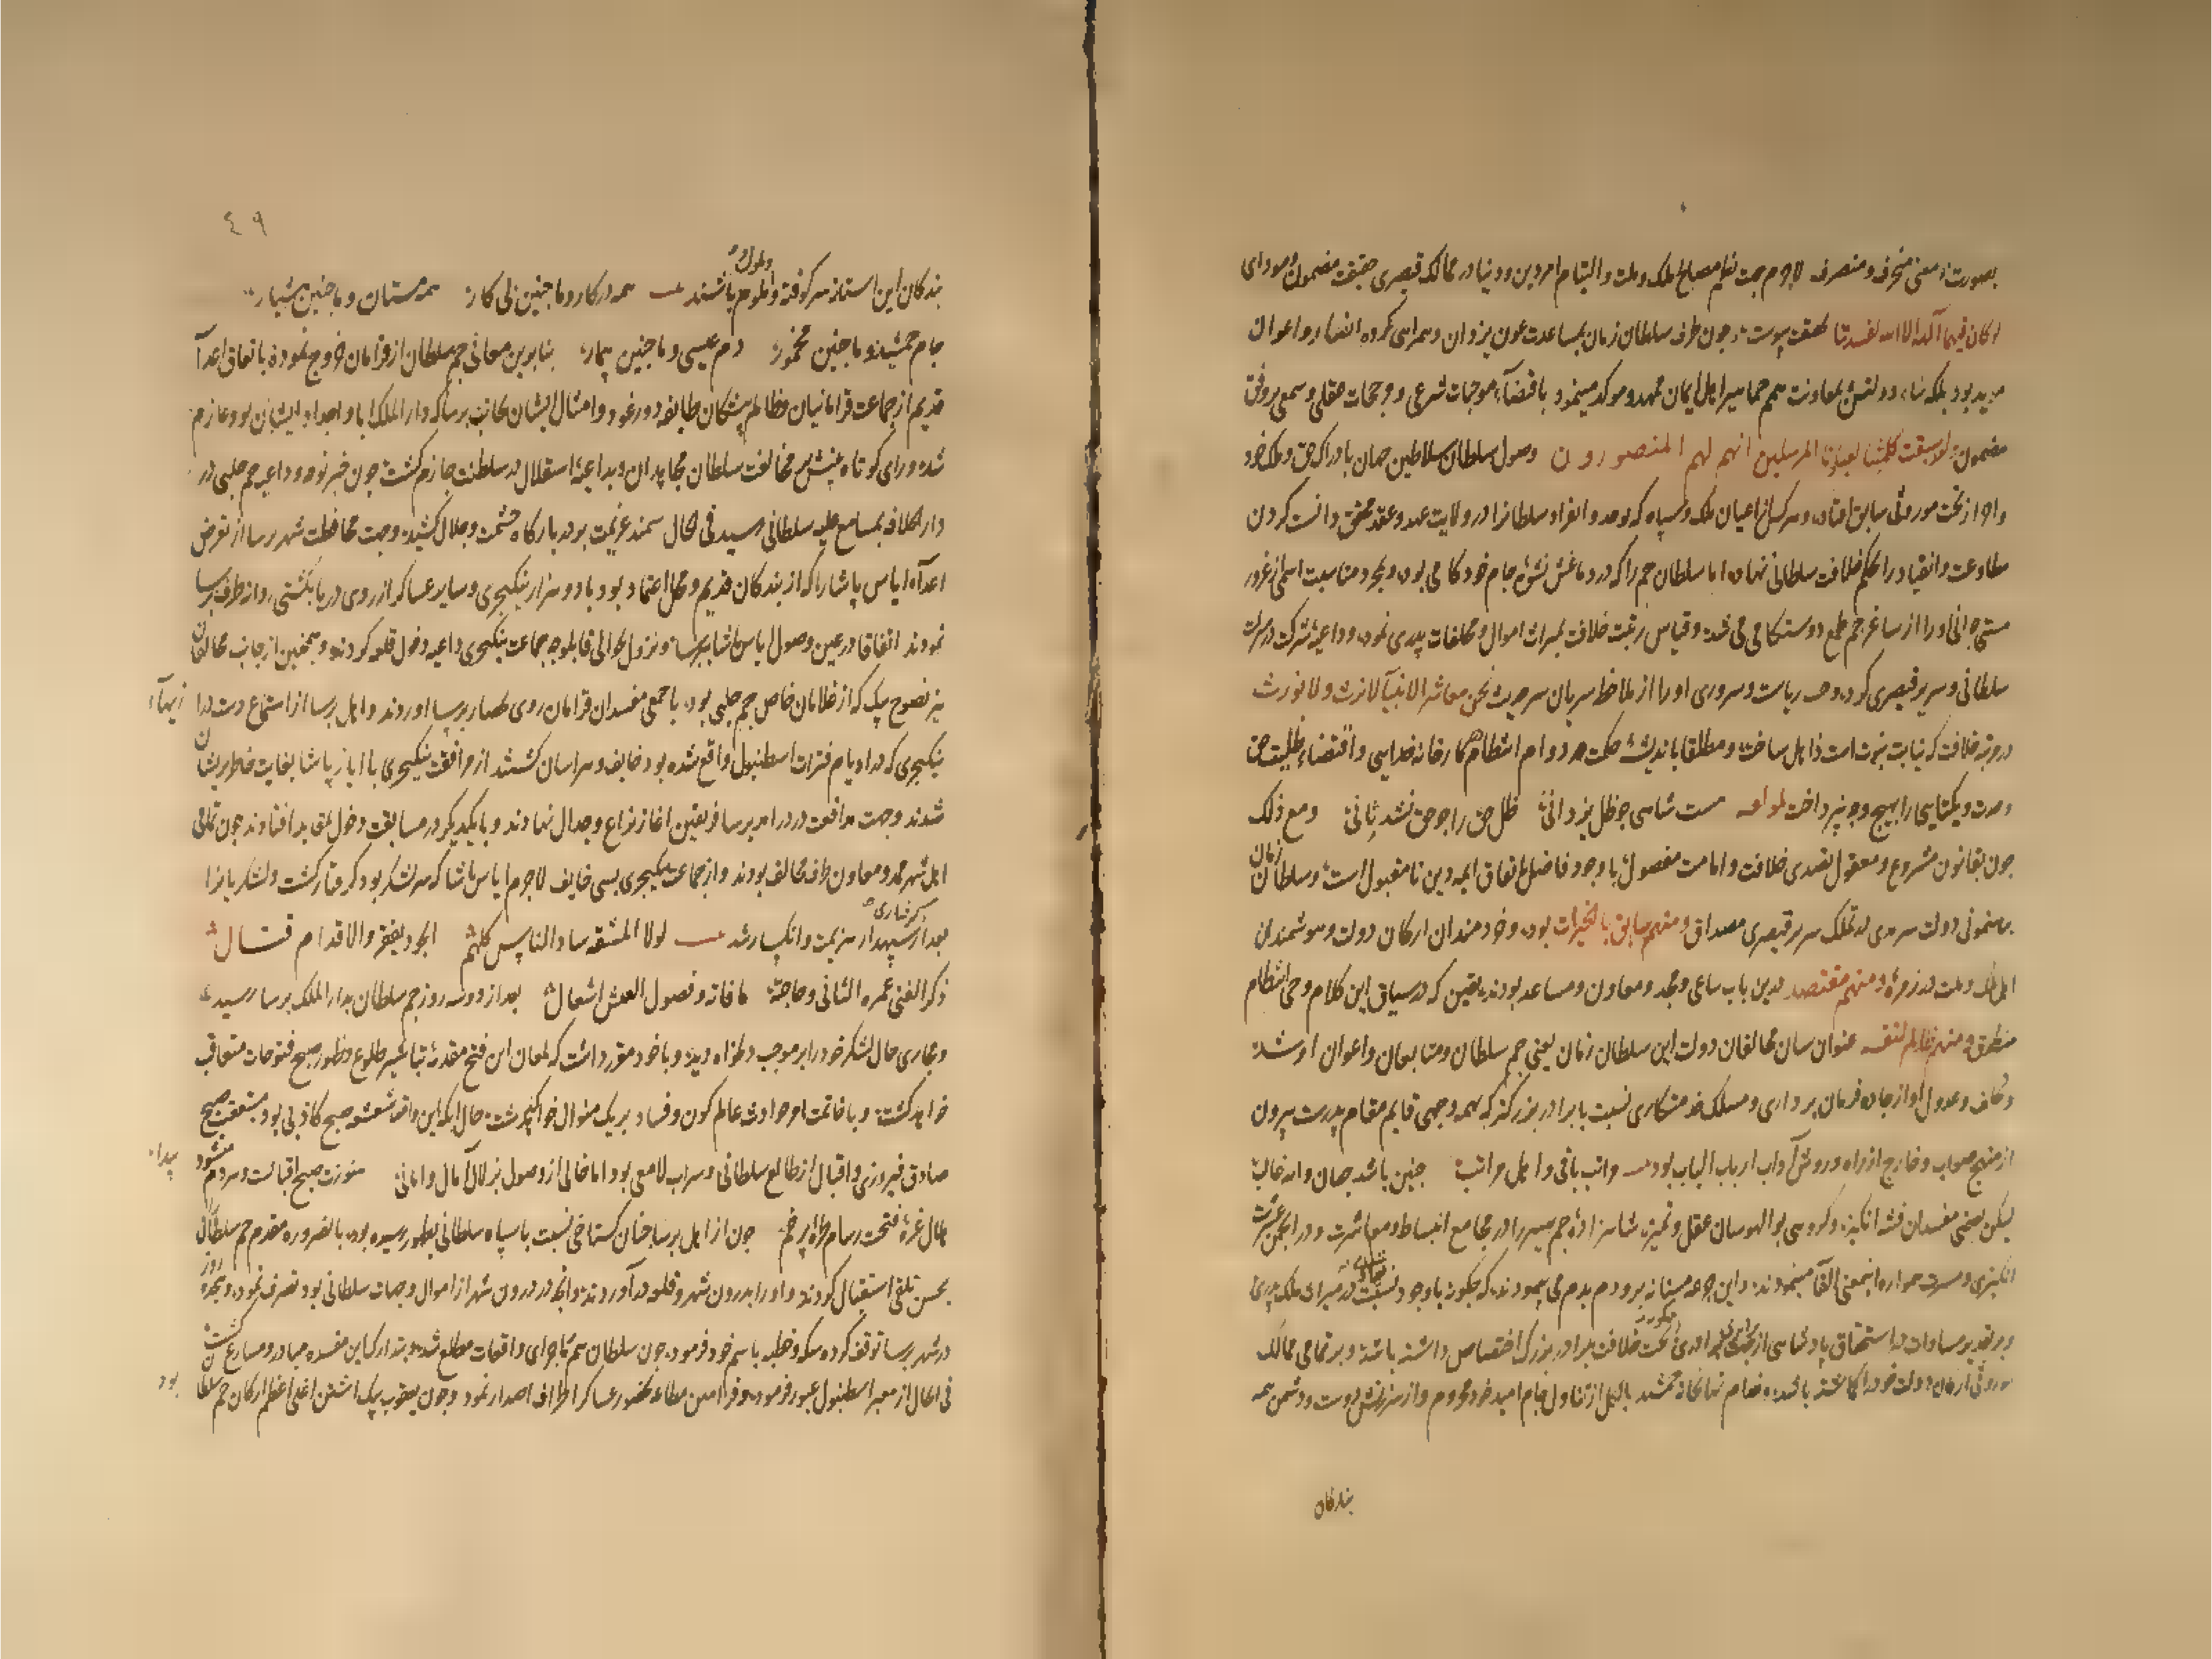 بصورت و معنی منحرف و منصرف لاجرم جهت نظم مصالح ملک و ملت و التیام امر دین و دنیا در ممالک قیصری حقیقت مضمون و مودای
لو کان فیهما آلهة الا الله لفسدتا بحقیقت پیوست و چون طرف سلطان زمان بمساعدت عون یزدان و همراهی کروه انصار و اعوان
موید بود بلکه بناء دولتش بمعاونت همم جماهیر اهل ایمان ممهد و موکد مینمود باقتضاء موجبات شرعی و مرجحات عقلی و سمعی بر وفق
مضمون و لقد سبقت کلمتنا لعبادنا المرسلین انهم لهم المنصورون وصول سلطان سلاطین جهان بادراک حق و ملک خود
و احراز تخت موروثی سابق افتاد و هر کس از اعیان ملک و سپاه که بوحدت و انفراد سلطانرا در ولایت عهد و عقد محقق دانست کردن
مطاوعت و انقیاد را بحکم خلافت سلطانی نهاد اما سلطان جم را که در دماغش نشوه جام خود کامی بود و بمجرد مناسبت اسمی از غرور
مستی جوانی او را از ساغر جم طمع دوستکامی می شد و قیاس رغبت خلافت بمیراث اموال و مخلفات پدری نمود و داعیه شرکت در منزلت
سلطانی و سریر قیصری کرد و حب ریاست و سروری او را از ملاحظه سریان سر حدیث نحن معاشر الانبیآء لا نرث و لا نورث
در مرتبه خلافت که نیابت نبوت است ذاهل ساخت و مطلقا باندیشه حکمت در دوام انتظام کارخانه خدایی و اقتضاء ظلیت حق
وحدت و یکتایی را بهیچ وجه نپرداخت لمولفه هست شاهی چو ظل یزدانی ظل حق را چو حق نشد ثانی و مع ذلک
چون بقانون مشروع و معقول تصدی خلافت و امامت مفضول با وجود فاضل باتفاق ایمه دین نا مقبول است و سلطان زمان
برهنمونی دولت سرمدی در تملک سریر قیصری مصداق و منهم سابق بالخیرات بود و خردمندان ارکان دولت و هوشمندان
اهل ملک و ملت در زمره و منهم مقتصد درین باب ساعی و مجد و معاون و مساعد بودند یقین که در سیاق این کلام وحی انتظام
منطوق و منهم ظالم لنفسه عنوان سان مخالفان دولت این سلطان زمان یعنی جم سلطان و متابعان و اعوان او شد
و تخلف و عدول او از جاده فرمان برداری و مسلک خدمتکاری نسبت با برادر بزرکتر که بهمه وجهی قایم مقام پدرست بیرون
از منهج صواب و خارج از راه و روش آداب ارباب الباب بود مراتب باقی و اهل مراتب چنین باشد جهان و الله غالب
لیکن بعضی مفسدان فتنه انکیز و کروهی بوالهوسان بی عقل و تمیز شاهزاده جم سریر را در مجامع انبساط و معاشرت و در انجمن عشرت
انکیزی و مسرت همواره اینمعنی القا مینمودند و این جرعه مستانه بر و دم بدم می پیمودند که چکونه با وجود نسبت متساوی در میراث ملک پدری
و بر تقدیر مساوات در استحقاق پادشاهی تخت خلافت برادر بزرک اختصاص داشته باشد و بر تمامی ممالک
موروثی از میان دولت خود را کماشته باشد و مقام جمشید بالکل از تناول جام امید خود محروم و از سرزنش دوست و دشمن همه
بندکان
٤٩
بندکان این آستانه سر کوفته و ملوم و ملول باشند همه در کار و ما چنین بی کار همه مستان و ما چنین هشیار
جام جمشید و ما چنین مخمور دم عیسی و ما چنین بیمار بنابرین معانی جم سلطان از قرامان خروج نموده باتفاق اعداء
قدیم از جماعت قرامانیان و ظالم پیشکان طایفه دورغود و امثال ایشان بجانب برسا که دار الملک ابا و اجداد ایشان بود عازم
شد و رای کوتاه بینش بر مخالفت سلطان مجاهدان و بداعیه استقلال در سلطنت جازم کشت چون خبر توجه و داعیه جم چلبی در
دار الخلافه بمسامع علیه سلطانی رسید فی الحال سمند عزیمت بدر بارکاه حشمت و جلال کشید و جهت محافظت شهر برسا از تعرض
اعداء ایاس پاشا را که از بندکان قدیم و محل اعتماد بود با دو هزار ینکیچری و سایر عساکر از روی دریا بکشتی روانه طرف برسا
نمودند اتفاقا در عین وصول ایاس پاشا ببرسا و نزول بحوالی قابلوجه جماعت ینکیچری داعیه دخول قلعه کردند و همچنین از جانب مخالفان
نیز نصوح بیک که از غلامان خاص جم چلبی بود با جمعی مفسدان قرامان روی بحصار برسا اوردند و اهل برسا از استماع دست درازیهاء
ینکیچری که در ایام فترات اسطنبول واقع شده بود خایف و هراسان کشتند از مرافقت ینکیچری با ایاز پاشا بغایت خاطر پریشان
شدند و جهت مدافعت در درآمد برسا فریقین اغاز نزاع و جدال نهادند و با یکدیکر در مسابقت دخول بلد افتادند چون تمامی
اهل شهر ممد و معاون طرف مخالف بودند و از جماعت ینکیچری بسی خایف لاجرم ایاس پاشا که سر لشکر بود کرفتار کشت و لشکریانرا
بعد از کرفتاری سپهدار هزیمت و انکسار شد لولا المشقة ساد الناس کلهم الجود یفقر والاقدام قتال
ذکر الفتی عمره الثانی و حاجته ما فاته و فضول العیش اشغال بعد از دو سه روز جم سلطان بدار الملک برسا رسید
و مجاری حال لشکر خود را بر موجب دلخواه دید و با خود مقرر داشت که لمعان این فتح مقدمه تباشیر طلوع و ظهور صبح فتوحات متعاقب
خواهد کشت و با خاتمت امر حوادث عالم کون و فساد بر یک منوال خواهد کذشت حال آنکه این واقعه شعشعه صبح کاذبی بود متعقب صبح
صادق فیروزی و اقبال از طالع سلطانی و سراب لامعی بود اما خالی از وصول بزلال آمال و امانی هنوزت صبح اقبالت و هر دم میشود پیدا
جمال غره فتحت ز شام طره پرخم چون از اهل برسا چنان کستاخی نسبت با سپاه سلطانی بظهور رسیده بود بالضروره مقدم جم سلطان
بحسن تلقی استقبال کردند و او را بدرون شهر و قلعه در آوردند و انچه در درون شهر از اموال و جهات سلطانی بود تصرف نمود و هجده روز
در شهر برسا توقف کرده سکه و خطبه باسم خود فرمود چون سلطان هم بماجرای واقعات مطلع شد بتدارک این مفسده مبادر و مسارع کشت
فی الحال از معبر اسطنبول عبور فرمود و فرامین مطاعه بحضور عساکر اطراف اصدار نمود و چون یعقوب بیک اشتن اغلی اعظم ارکان جم سلطان بود